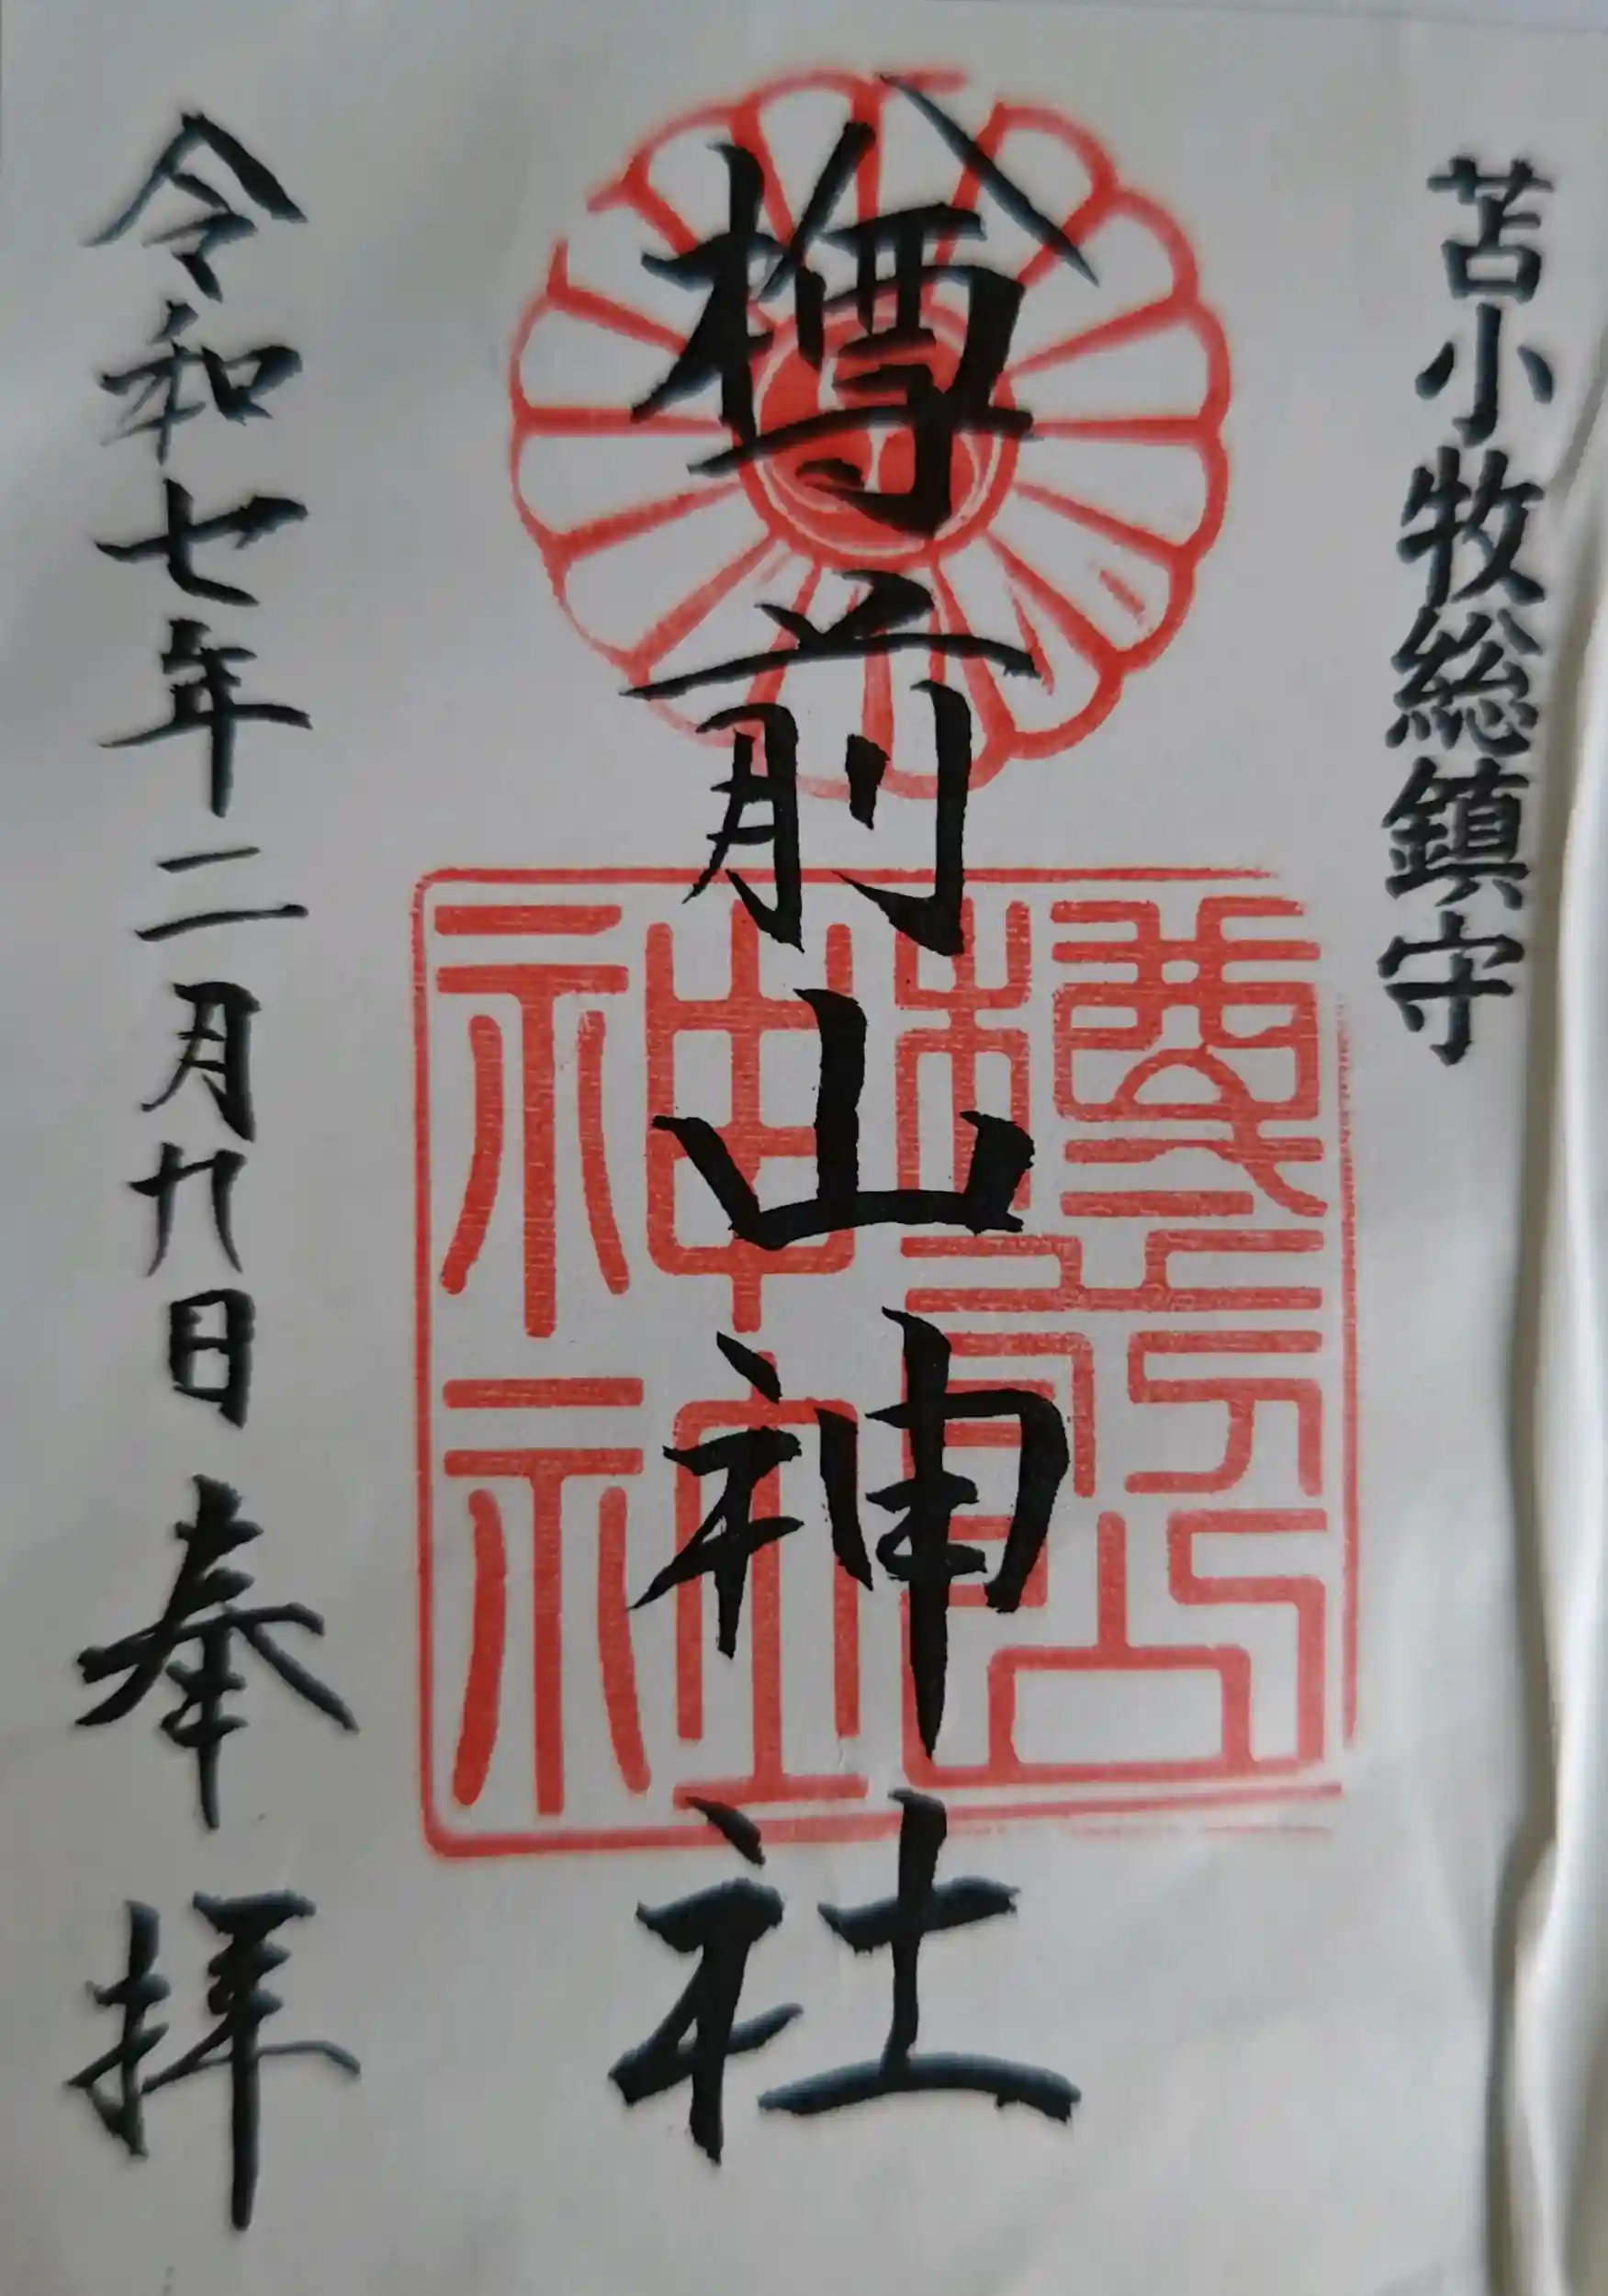 苫小牧総鎮守
樽前山神社
令和七年二月九日 奉拝
樽前山
神社